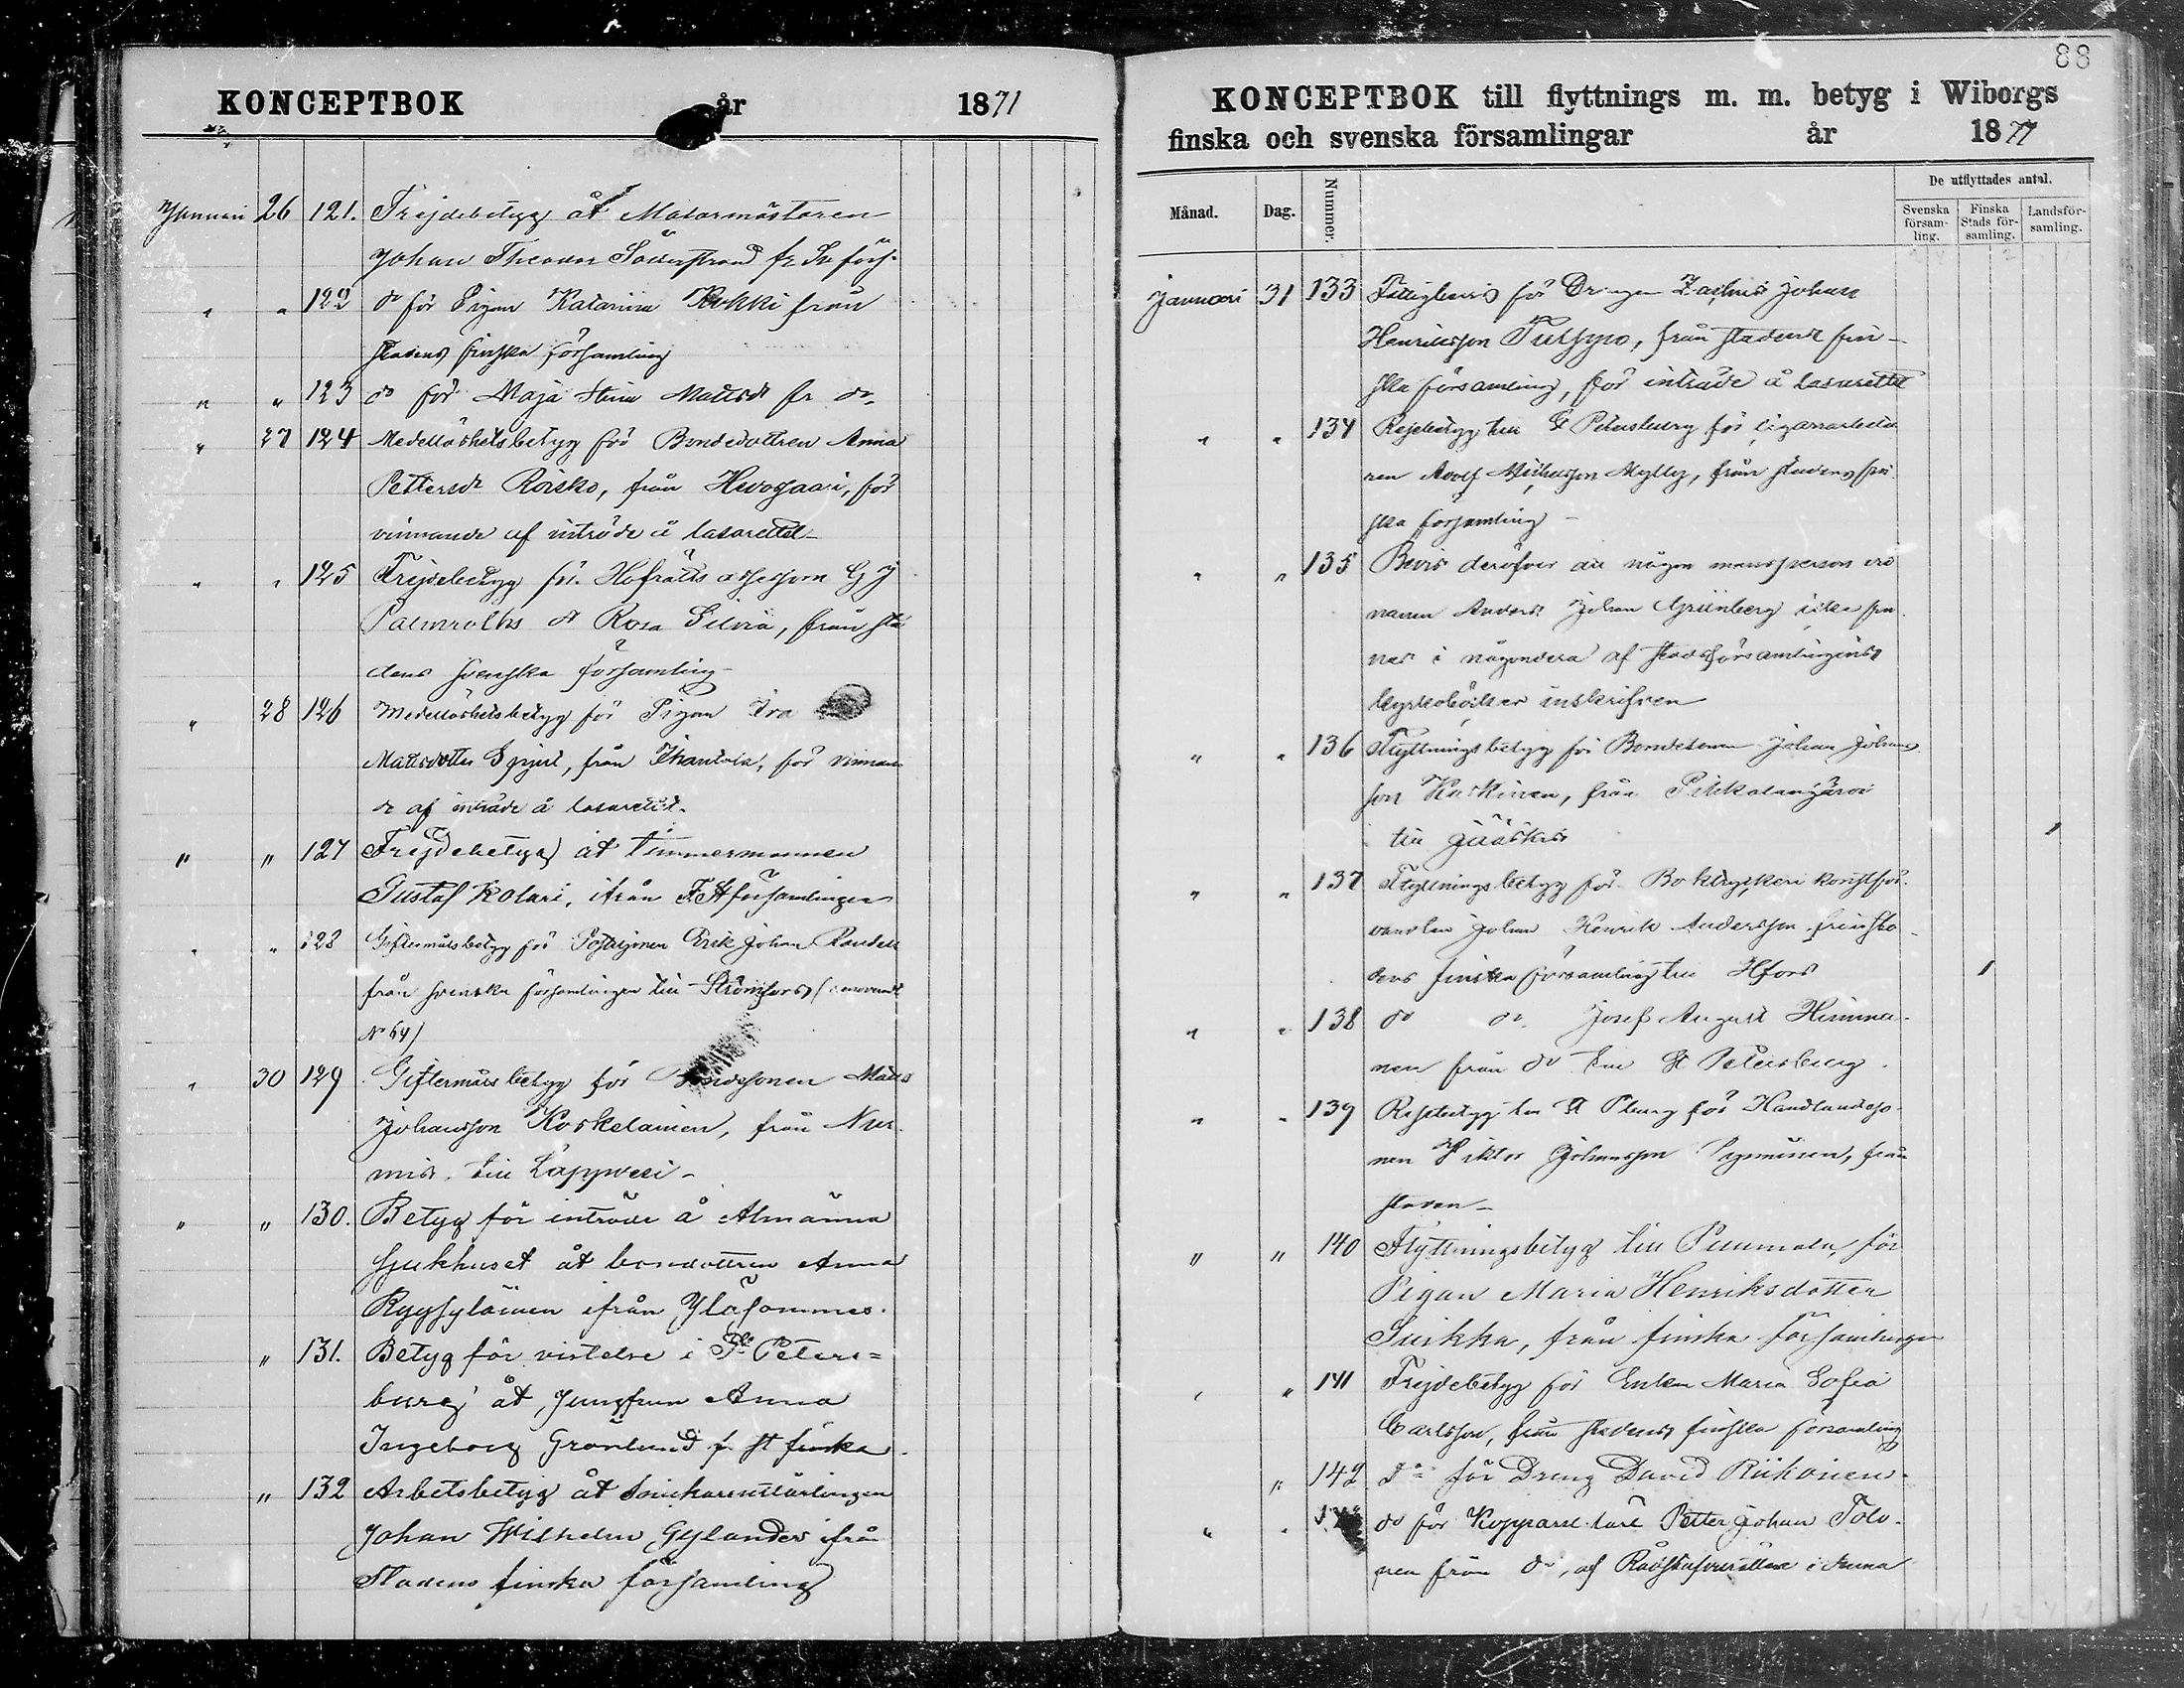 KONCEPTBOK år 1871
Januari 26 121. Frejdebetyg åt Målarmästaren
Johan Theodor Söderstrand fr Sv förs.
" " 122 do för Pigan Katarina Kukki från
stadens finska församling
" " 123 do för Maja Stina Mattsdr fr do
" 27 124 Medellöshetsbetyg för Bondedottren Anna
Pettersdr Roisko, från Hevogaari, för
vinnande af inträde å lasarettet
" " 125 Frejdebetyg för Hofrätts assessorn G J
Palmroths dr Rosa Silvia, från sta
dens svenska församling
" 28 126 Medellöshetsbetyg för Pigan Eva
Mattsdotter, från, för vinnan
de af inträde å lasarettet.
" " 127 Frejdebetyg åt timmermannen
Gustaf Kolari, ifrån F. St församlingen
" " 128 Giftermålsbetyg för Postiljonen Erik Johan
från svenska församlingen till Strömfors (
No 64)
" 30 129 Giftermålsbetyg för Mats
Johansson Koskelainen, från Nur
mis, till Lappvesi
" " 130. Betyg för inträde å Almänna
sjukhuset åt bondottren Anna
ifrån Yläsommes.
" 131. Betyg för vistelse i St Peters=
burg åt Jungfrun Anna
Ingeborg Grönlund fr st finska
" 132 Arbetsbetyg åt Snickarenslärlingen
Johan Wilhelm Gylander ifrån
Stadens finska församling
88
KONCEPTBOK till flyttnings m. m. betyg i Wiborgs
finska och svenska församlingar år 1877
Månad. Dag. Nummer. De utflyttades antal.
Svenska församling. Finska Stads församling. Landsförsamling.
Januari 31 133 Fattigbevis för Drengen Zachris Johan
Henriksson, från stadens fin-
ska församling, för inträde å lasarettet
" " 134 Resebetyg till St Petersburg för cigarrarbeta
ren Adolf Mylly, från stadens fin
ska församling
" " 135 Bevis deröfver att någon mansperson vid
namn Anders Johan Grünberg icke fin
nes i någondera af stadsförsamlingens
kyrkoböcker inskrifven
" " 136 Flyttningsbetyg för Bondesonen Johan Johans
son Koskinen, från
till Jääskis 1
" " 137 Flyttningsbetyg för Boktryckeri konstför
vandten Johan Henrik Andersson från sta
dens finska församling till Hfors 1
" " 138 do do Josef August Himma-
nen från do till St Petersburg.
" " 139 Resebetyg till St Pburg för Handlandeso
nen Viktor Johansson, från
staden
" " 140 Flyttningsbetyg till Puumala, för
Pigan Maria Henriksdotter
Suikka, från finska församlingen
" " 141 Frejdebetyg för Enkan Maria Sofia
Carlsson, från stadens finska församling
" 142 do för Dreng David Riikonen
" " do för Petter Johan Tolo-
nen från do, af i Anna